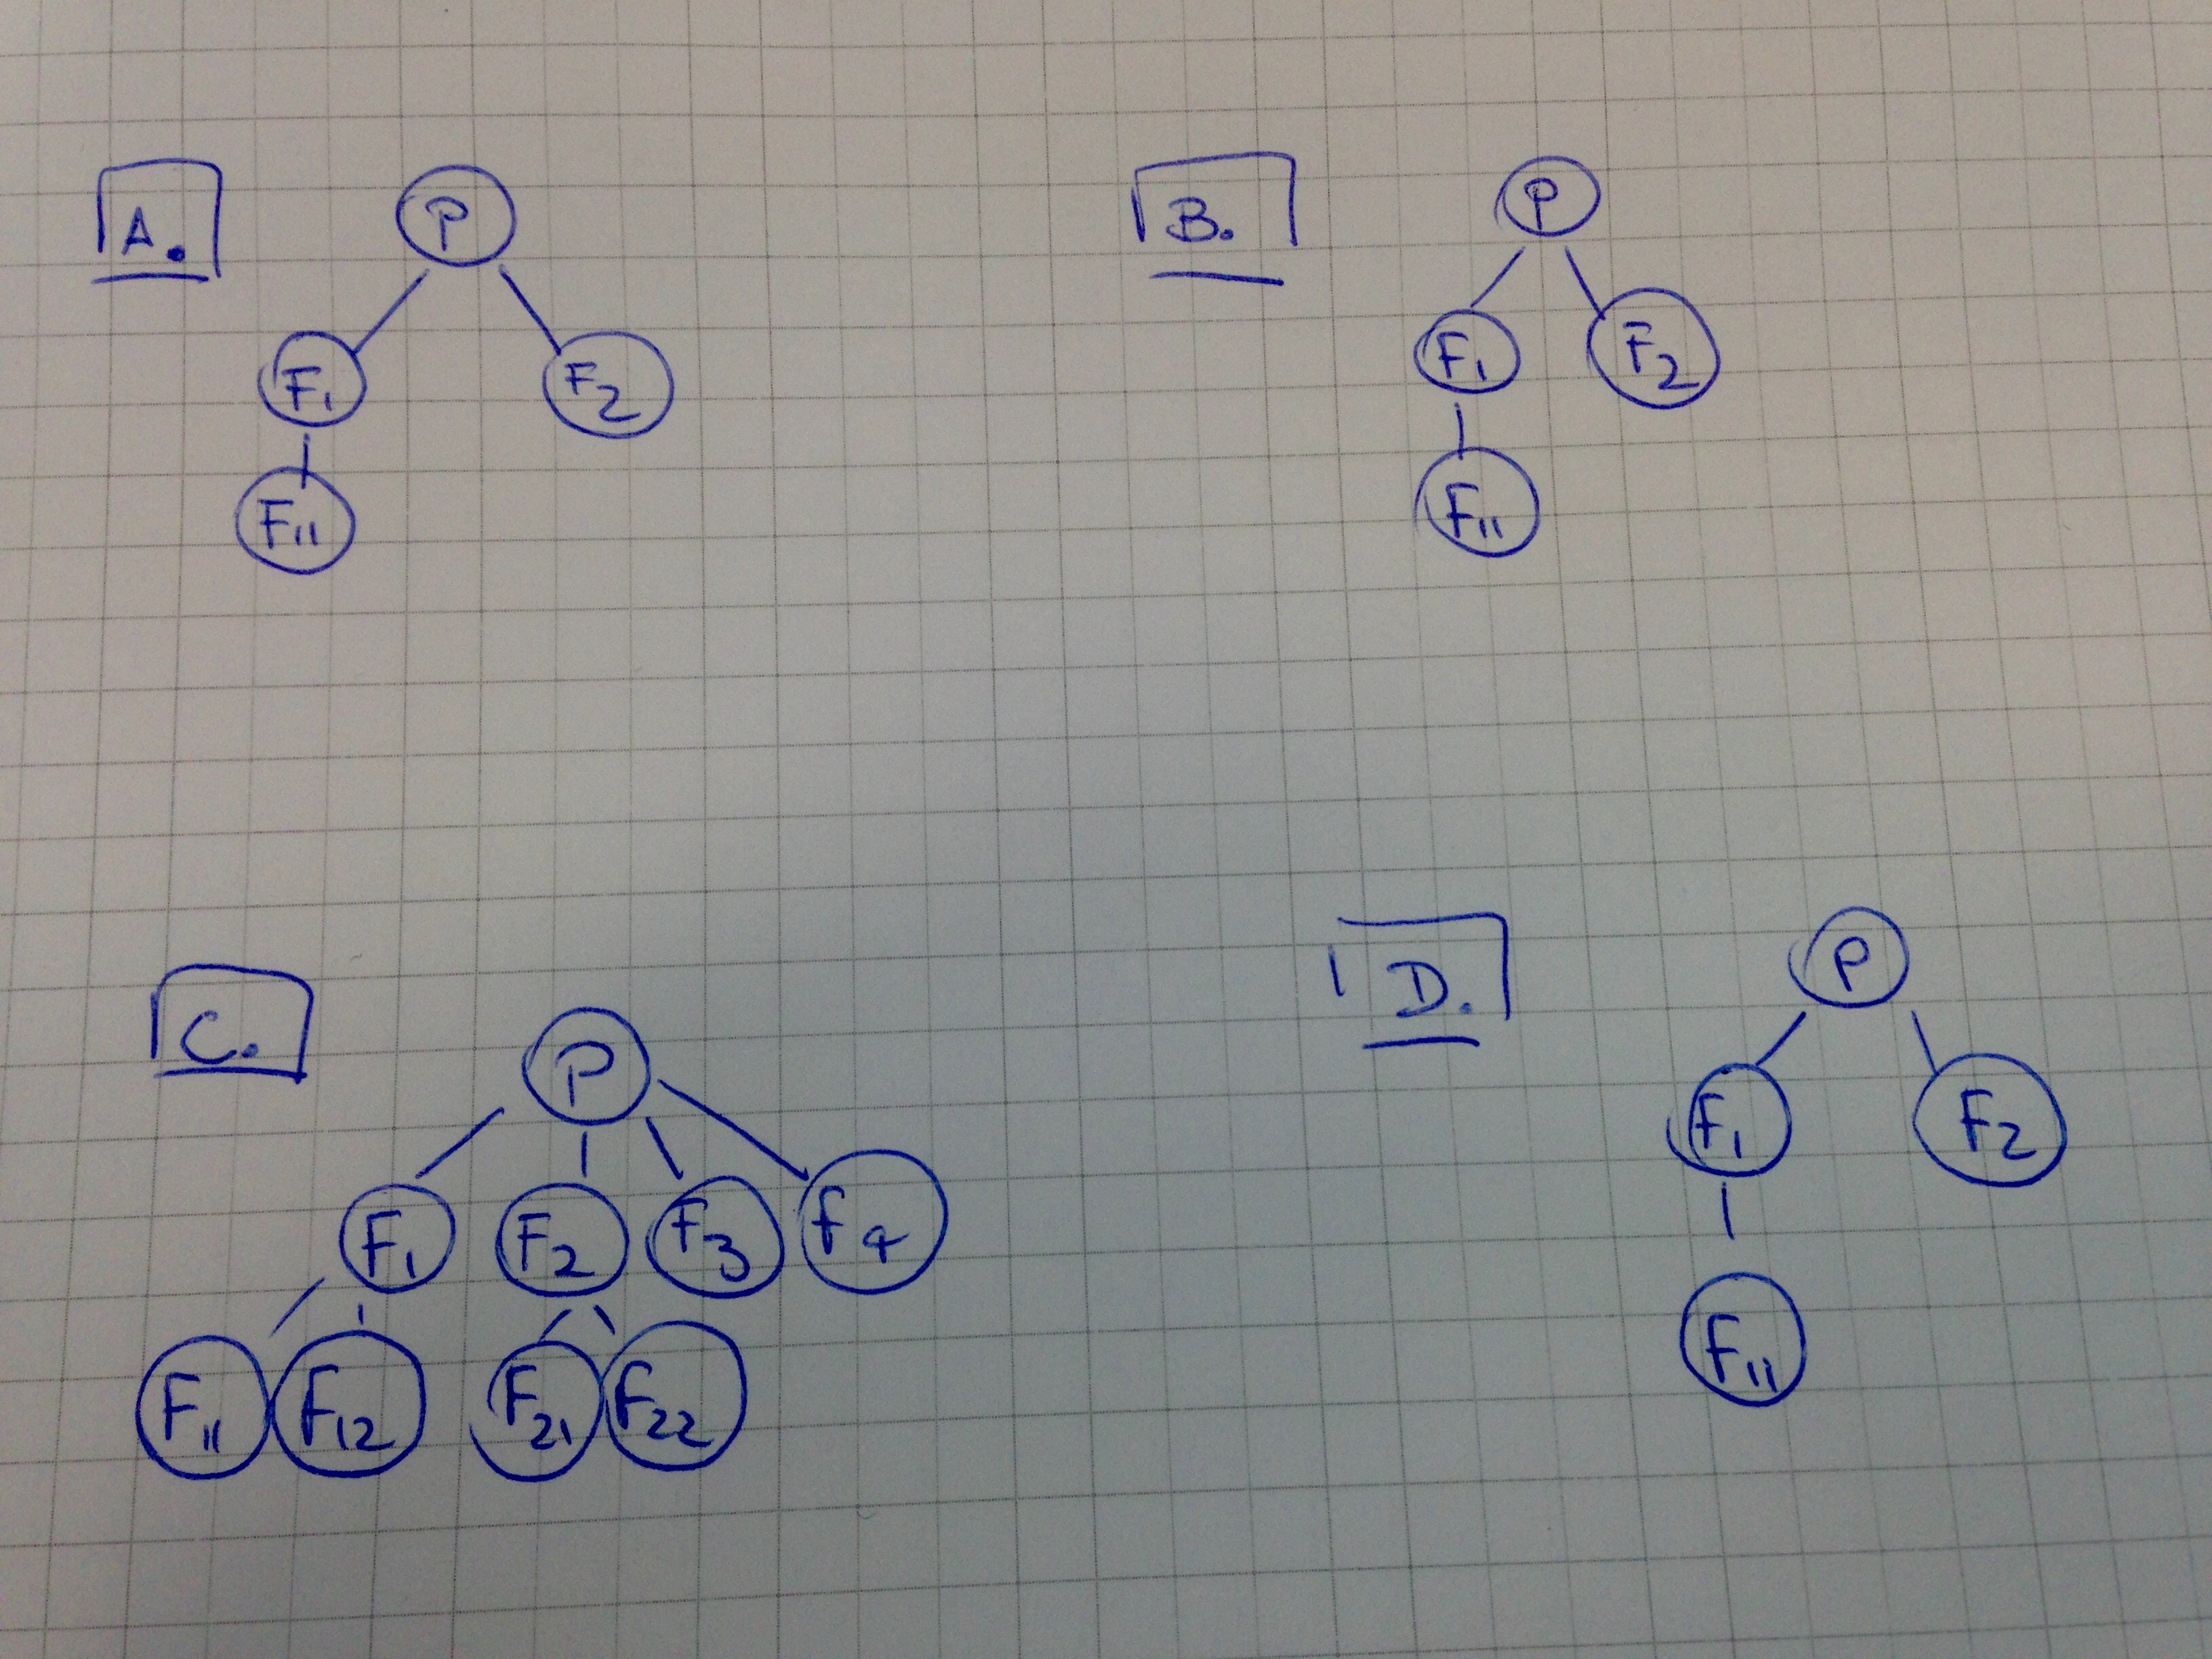 A.
P
F1 F2
F11
B.
P
F1 F2
F11
C.
P
F1 F2 F3 F4
F11 F12 F21 F22
D.
P
F1 F2
F11